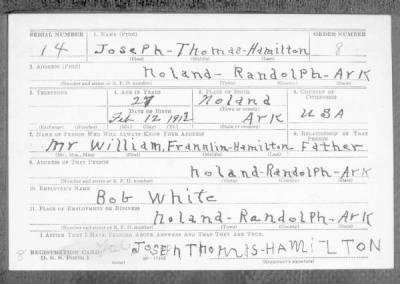 SERIAL NUMBER 1. NAME (Print) ORDER NUMBER
14 Joseph-Thomas-Hamilton 8
(First) (Middle) (Last)
2. ADDRESS (Print)
Noland-Randolph-Ark
(Number and street or R. F. D. number) (Town) (County) (State)
3. TELEPHONE 4. AGE IN YEARS 5. PLACE OF BIRTH 6. COUNTRY OF CITIZENSHIP
27 Noland
DATE OF BIRTH (Town or county)
Feb 12 1912 Ark USA
(Exchange) (Number) (Mo.) (Day) (Yr.) (State or country)
7. NAME OF PERSON WHO WILL ALWAYS KNOW YOUR ADDRESS 8. RELATIONSHIP OF THAT PERSON
Mr William, Frannlin-Hamilton Father
(Mr., Mrs., Miss) (First) (Middle) (Last)
9. ADDRESS OF THAT PERSON
Noland-Randolph-Ark
(Number and street or R. F. D. number) (Town) (County) (State)
10. EMPLOYER'S NAME
Bob White
11. PLACE OF EMPLOYMENT OR BUSINESS
Noland-Randolph-Ark
(Number and street or R. F. D. number) (Town) (County) (State)
I AFFIRM THAT I HAVE VERIFIED ABOVE ANSWERS AND THAT THEY ARE TRUE.
REGISTRATION CARD JOSEPH THOMAS-HAMILTON
D. S. S. FORM 1 (Registrant's signature)